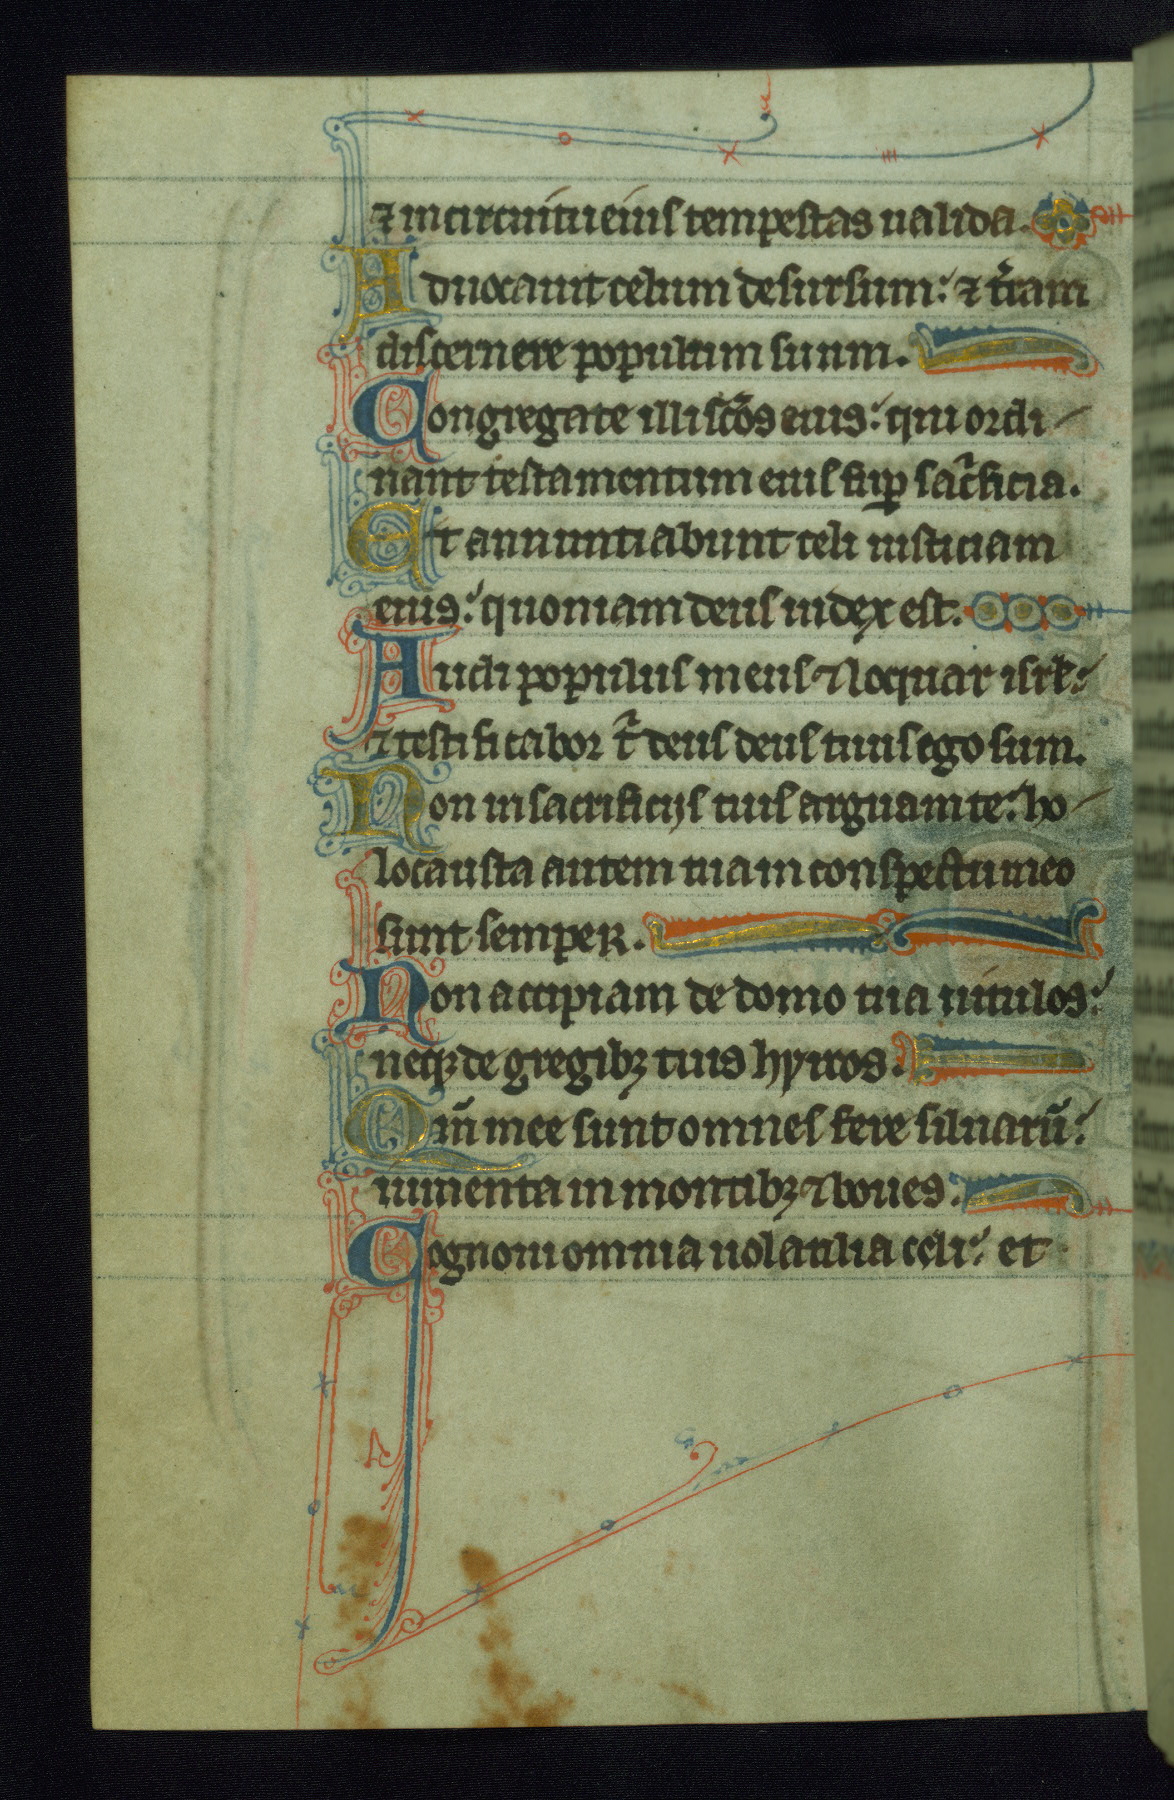 ⁊ in circuitu eius tempestas ualida.
Aduocauit celum desursum: ⁊ t̾ram
discernere populum suum.
Congregate illi sc̄os eius: qui ordi
nant testamentum eius sup̱ sac̾ficia.
Et annuntiabunt celi iusticiam
eius: quoniam deus iudex est.
Audi populus meus ⁊ loquar isrl̄:
⁊ testificabor t̾ deus deus tuus ego sum.
Non in sacrificijs tuis arguam te: ho
locausta autem tua in conspectu meo
sunt semper.
Non accipiam de domo tua uitulos:
neqꝫ de gregibꝫ tuis hyrcos.
Qm̄ mee sunt omnes fere siluarū:
iumenta in montibꝫ ⁊ boues.
Cognoui omnia uolatilia celi: et